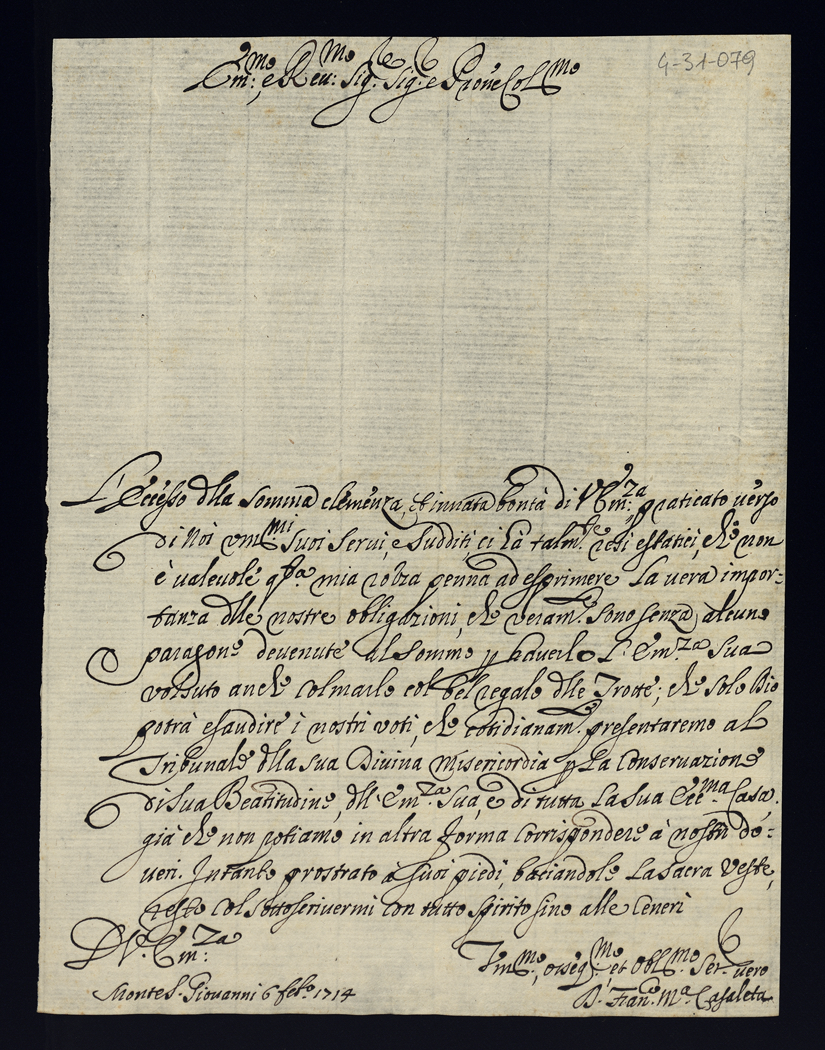 Em:mo e Reu:mo Sig.r Sig.r e Prone Col:mo
4-31-079
L'eccesso dlla somma clemenza, et innata bontà di V. Em:za praticato uerso
di noi vmil.mi suoi serui, e sudditi, ci hà talm.te resi estatici, che non
è valeuole q.sta mia roza penna ad esprimere la uera impor-
tanza dlle nostre obligazioni, che veram.te sono senza alcuno
paragone deuenute al sommo p hauerlo l'Em.za Sua
voluto anche colmarle col bel regalo dlle Trotte; che solo Dio
potrà esaudire i nostri voti, che cotidianam.te presentaremo al
Tribunale dlla sua Diuina Misericordia p la conseruazione
di sua Beatitudine, dll'Em.za Sua, e di tutta la sua Ecc.ma Casa,
già che non potiamo in altra forma corrispondere à nostri do-
ueri. Intanto prostrato à suoi piedi, baciandole la sacra Veste,
resto col sottoscriuermi con tutto spirito sino alle ceneri
D V. Em:za
Vm:mo, osseq:mo, et Obl:mo Ser.r uero
Monte S. Giouanni 6 feb.o 1714
D. Fran.co M.a Casaleta